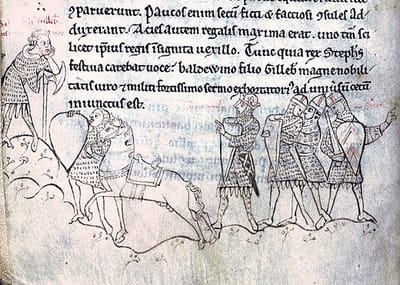 ꝯparuerunt. Paucos enim secū ficti ⁊ factiosi ꝯsules ad
duxerant. Acies autem regalis maxima erat. uno tm̄ sci
licet ip̄ius regis īsignita uexillo. Tunc quia rex Stephs
festiua carebat uoce. baldewino filio Gilleb̄ magne nobili
tatis uiro ⁊ militi fortissimo sermo exhortatori᷒ ad uniūsū cetū
iniunctus est.